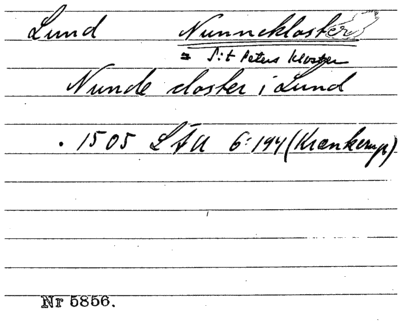 Lund Nunnekloster
= S:t Peters Kloster
Nunde closter i Lund
. 1505 LÄU 6:194 (Krankerup)
Nr 5856.